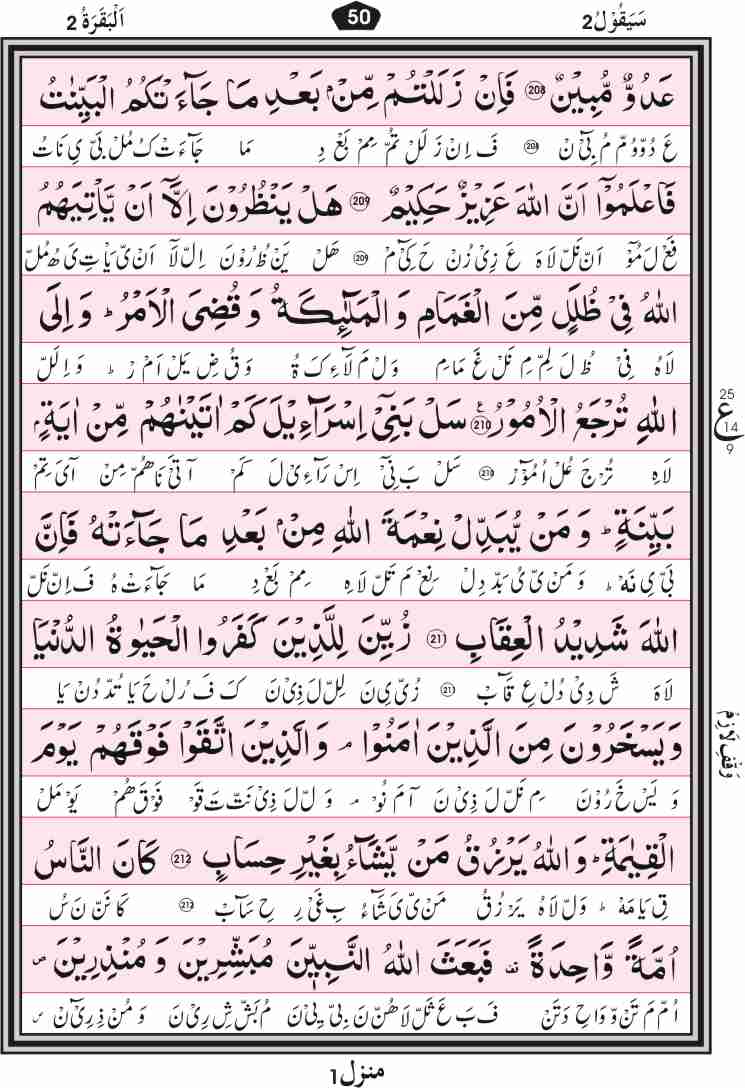 سَيَقُوْلُ2 50 اَلْبَقَرَةُ 2
عَدُوٌّ مُّبِيْنٌ 208 فَاِنْ زَلَلْتُمْ مِّنْۢ بَعْدِ مَا جَآءَتْكُمُ الْبَيِّنٰتُ
عَ دُوْ وُمْ مُ بِیْٓ نْ 208 فَ اِنْ زَ لَلْ تُمْ مِمْ بَعْ دِ مَا جَآءَتْ كُ مُلْ بَىْ یِ نَاتُ
فَاعْلَمُوْۤا اَنَّ اللهَ عَزِيْزٌ حَكِيْمٌ 209 هَلْ يَنْظُرُوْنَ اِلَّاۤ اَنْ يَّاْتِيَهُمُ
فَعْ لَ مُوْٓ اَنْ نَلْ لَاهَ عَ زِىْ زُنْ حَ كِىْٓ مْ 209 هَلْ يَنْ ظُ رُوْنَ اِلْ لَآ اَنْ ىْ يَاْتِ ىَ هُ مُلْ
اللهُ فِيْ ظُلَلٍ مِّنَ الْغَمَامِ وَ الْمَلٰٓئِكَةُ وَ قُضِيَ الْاَمْرُ ؕ وَ اِلَى
لَاهُ فِیْ ظُ لَ لِمْ مِ نَلْ غَ مَامِ وَلْ مَ لَآءِ كَ ةُ وَ قُ ضِ يَلْ اَمْ رْ ؕ وَ اِلَلْ
اللهِ تُرْجَعُ الْاُمُوْرُ 210 ع سَلْ بَنِيْۤ اِسْرَآءِيْلَ كَمْ اٰتَيْنٰهُمْ مِّنْ اٰيَةٍۭ
25
ع
14
9
لَاهِ تُرْجَ عُلْ اُ مُوْٓرْ 210 سَلْ بَ نِیْٓ اِسْ رَآءِیْ لَ كَمْ آ تَیْ نَاهُمْ مِنْ آىَ تِمْ
بَيِّنَةٍ ؕ وَ مَنْ يُّبَدِّلْ نِعْمَةَ اللهِ مِنْۢ بَعْدِ مَا جَآءَتْهُ فَاِنَّ
بَىْ یِ نَهْ ؕ وَ مَنْ ىْ يُ بَدْ دِلْ نِعْ مَ تَلْ لَاهِ مِمْ بَعْ دِ مَا جَآءَتْ هُ فَ اِنْ نَلْ
اللهَ شَدِيْدُ الْعِقَابِ 211 زُيِّنَ لِلَّذِيْنَ كَفَرُوا الْحَيٰوةُ الدُّنْيَا
لَاهَ شَ دِىْ دُلْ عِ قَآبْ 211 زُىْ ىِ نَ لِلْ لَ ذِىْ نَ كَ فَ رُلْ حَ يَا تُدْ دُنْ يَا
وَيَسْخَرُوْنَ مِنَ الَّذِيْنَ اٰمَنُوْا ۘ وَالَّذِيْنَ اتَّقَوْا فَوْقَهُمْ يَوْمَ
وَقْفِ لَازِمْ
وَ يَسْ خَ رُوْنَ مِ نَلْ لَ ذِىْ نَ آ مَ نُوْ ۘ وَلْ لَ ذِىْ نَتْ تَ قَوْ فَوْقَ هُمْ يَوْ مَلْ
الْقِيٰمَةِ ؕ وَاللهُ يَرْزُقُ مَنْ يَّشَآءُ بِغَيْرِ حِسَابٍ 212 كَانَ النَّاسُ
قِ يَا مَهْ ؕ وَلْ لَاهُ يَرْ زُقُ مَنْ ىْ يَ شَآءُ بِ غَىْ رِ حِ سَآبْ 212 كَا نَنْ نَاسُ
اُمَّةً وَّاحِدَةً فَبَعَثَ اللهُ النَّبِيّٖنَ مُبَشِّرِيْنَ وَ مُنْذِرِيْنَ ص
اُمْ مَ تَنْ وْ وَاحِ دَتَنْ فَ بَ عَ ثَلْ لَاهُنْ نَ بِیْ يِیْ نَ مُ بَشْ شِ رِیْ نَ وَ مُنْ ذِرِیْٓ نَ
منزل1